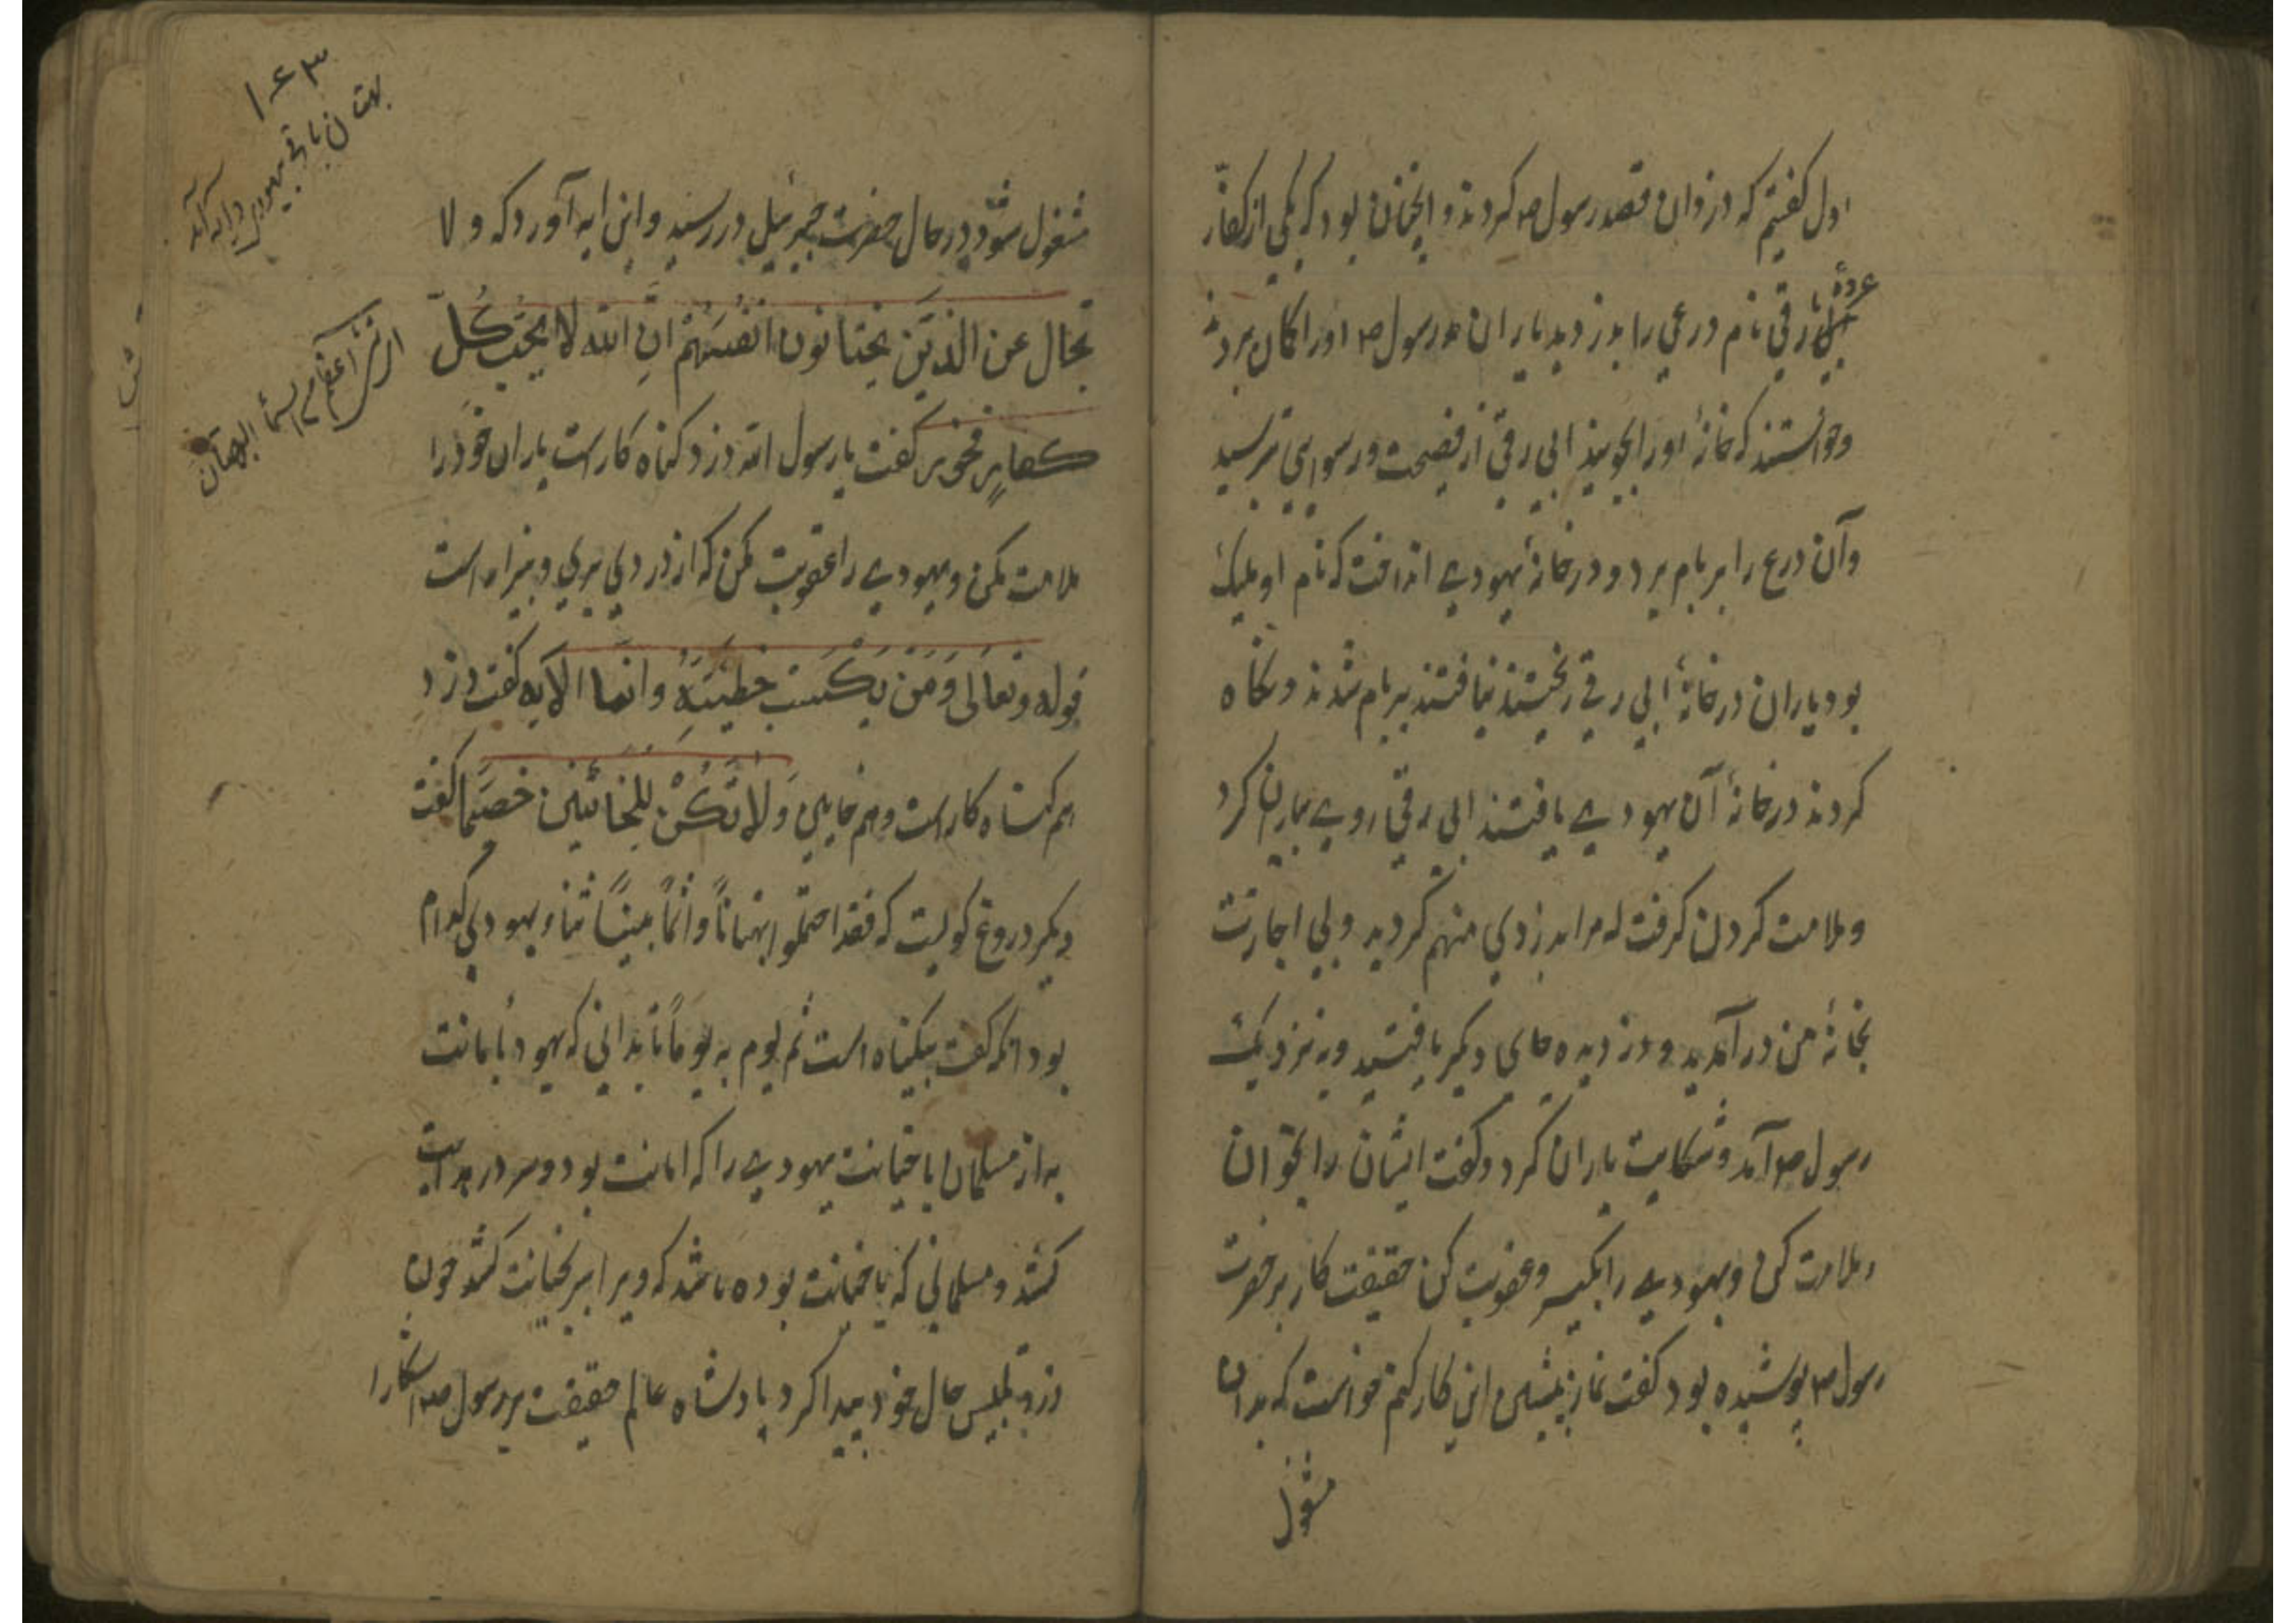 اول کفتیم که دزدان قصد رسول ص کردند و انچنان بود که یکی از کفار
رقی نام درعی را بدزدید یاران رسول ص او را کمان بردند
وخواستند که خانۀ او را بجویند ابی رقی از فضیحت و رسوایی بترسید
وآن درع را بر بام برد و در خانۀ یهودے انداخت که نام او ملیک
بود یاران در خانۀ ابی رقی ریختند نیافتند بر بام شدند و نکاه
کردند در خانۀ آن یهودے یافتند ابی رقی روے بیاران کرد
و ملامت کردن کرفت که مرا بدزدی متهم کردید و بی اجازت
بخانۀ من در آمدید و دزدیده جای دیکر یافتید و به نزدیک
رسول ص آمد و شکایت یاران کرد و کفت ایشان را بخوان
و ملامت کن و یهودے را بکیر و عقوبت کن حقیقت کار بر حضرت
رسول ص پوشیده بود کفت نماز پیشین این کار کنم خواست که بدان
مشغول
مشغول شود در حال حضرت جبرئیل در رسید و این ایه آورد که ولا
تجادل عن الذین یختانون انفسهم ان الله لا یحب کل
کفار فخور کفت یا رسول الله دزد کناه کار است یاران خود را
ملامت مکن و یهودے را عقوبت مکن که از دزدی بری و بیزار است
قوله وتعالی وَمَنْ یَکْسِبْ خطیئة واثما الآیه کفت دزد
هم کناه کار است و هم خاین وَلا تَکُنْ لِلخائنین خصیما کفت
دیکر دروغ کویست که فقد احتملوا بهتاناً واثماً مبیناً یهودی کدام
بود انکه کفت بیکناه است ثم یرم به بریئاً تا بدانی که یهود با امانت
به از مسلمان با خیانت یهودے را که امانت بود و سر در هدایت
کشد و مسلمانی که با خیانت بوده باشد که ویرا بر خیانت کشد چون
دزد تلبیس حال خود پیدا کرد پادشاه عالم حقیقت بر رسول ص اشکارا
۱۶۳